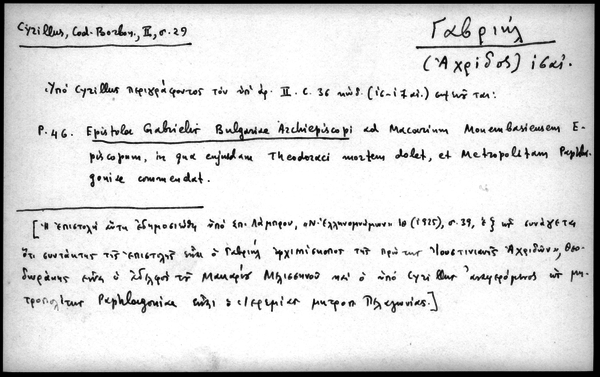 Cyrillus, Cod. Borbon., II, σ. 29
Γαβριήλ
(Ἀχρίδος) ις΄ αἰ.
Ὑπὸ Cyrillus περιγράφοντος τὸν ὑπ' ἀρ. II. C. 36 κώδ. (ις-ιζ αἰ.)
P. 46. Epistola Gabrielis Bulgariae Archiepiscopi ad Macarium Monembasiensem E-
piscopum, in qua cujusdam Theodoraci mortem dolet, et Metropolitam Paphla-
goniae commendat.
[Ἡ ἐπιστολὴ αὕτη ἐδημοσιεύθη ὑπὸ Σπ. Λάμπρου, «Ν. Ἑλληνομνήμων» 19 (1925), σ. 39, ἐξ ἧς συνάγεται
ὅτι συντάκτης τῆς ἐπιστολῆς εἶναι ὁ Γαβριὴλ ἀρχιεπίσκοπος τῆς πρώτης Ἰουστινιανῆς Ἀχριδῶν», Θεο-
δωράκης εἶναι ὁ ἀδελφὸς τοῦ Μακαρίου Μελισσηνοῦ καὶ ὁ ὑπὸ Cyrillus ἀναφερόμενος ὡς μη-
τροπολίτης Paphlagoniae εἶναι ὁ Ἰερεμίας μητροπ. Πελαγωνίας.]